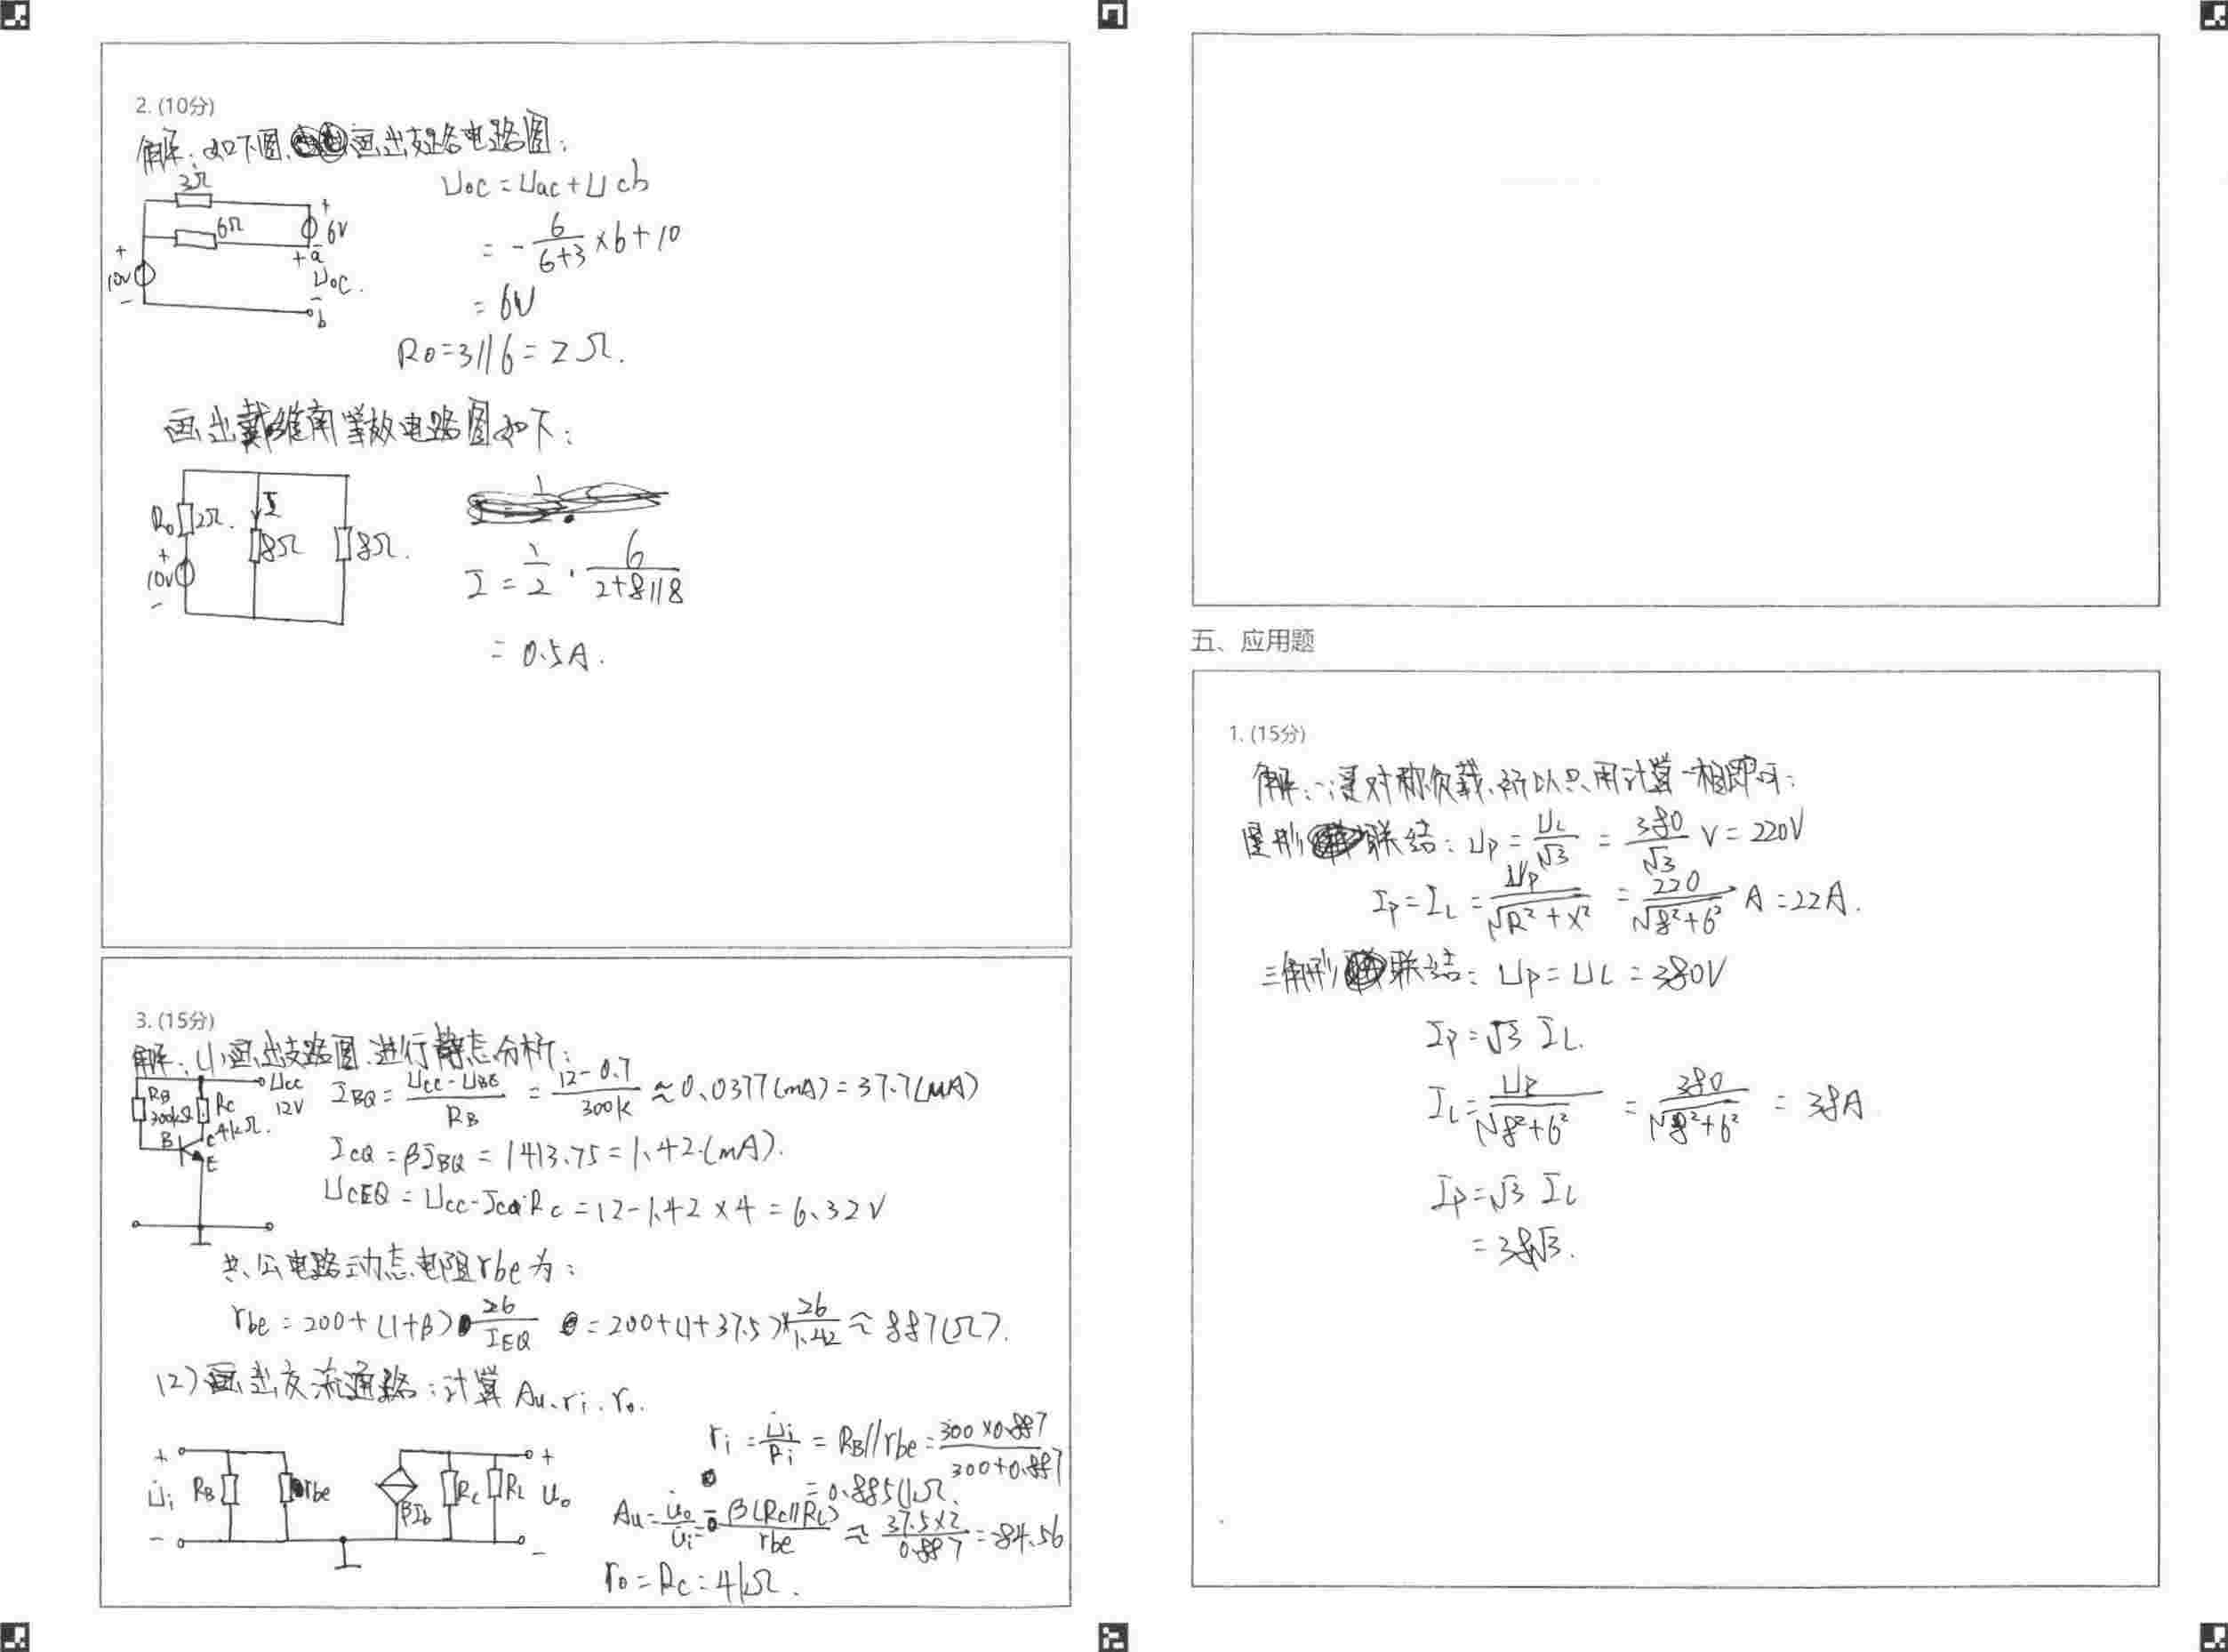 2. (10分)
解：如下图，画出支路电路图：
3Ω
6Ω
+
6V
-
+
10V
-
+ a
Uoc.
-
b
Uoc = Uac + Ucb
= - 6/(6+3) ×6+10
= 6V
R0=3//6=2Ω.
画出戴维南等效电路图如下：
R0 2Ω.
I
8Ω
8Ω.
+
10V
-
I = 1/2 · 6/(2+8//8)
= 0.5A.
3. (15分)
解：(1)画出支路图，进行静态分析：
RB
300kΩ
Rc
4kΩ.
Ucc
12V
B
C
E
IBQ = (Ucc-UBE)/RB = (12-0.7)/300k ≈ 0.0377(mA) = 37.7(μA)
ICQ = βIBQ = 1413.75 = 1.42(mA).
UCEQ = Ucc-ICQ·Rc = 12-1.42×4 = 6.32V
共公电路动态电阻rbe为：
rbe = 200+(1+β) 26/IEQ = 200+(1+37.5)×26/1.42 ≈ 887(Ω).
(2)画出交流通路：计算Au、ri、ro.
+
U̇i
-
RB
rbe
βIb
Rc
RL
+
uo
-
ri = U̇i/Ri = RB//rbe = (300×0.887)/(300+0.887)
= 0.885kΩ.
Au = u̇o/u̇i = - β(Rc//RL)/rbe ≈ (37.5×2)/0.887 = -84.56
ro = Rc = 4kΩ.
五、应用题
1. (15分)
解：∵是对称负载，所以只用计算一相即可：
星形联结：Up = UL/√3 = 380/√3 V = 220V
Ip = IL = Up/√(R²+X²) = 220/√(8²+6²) A = 22A.
三角形联结：Up = UL = 380V
Ip = √3 IL.
IL = Up/√(8²+6²) = 380/√(8²+6²) = 38A
Ip = √3 IL
= 38√3.